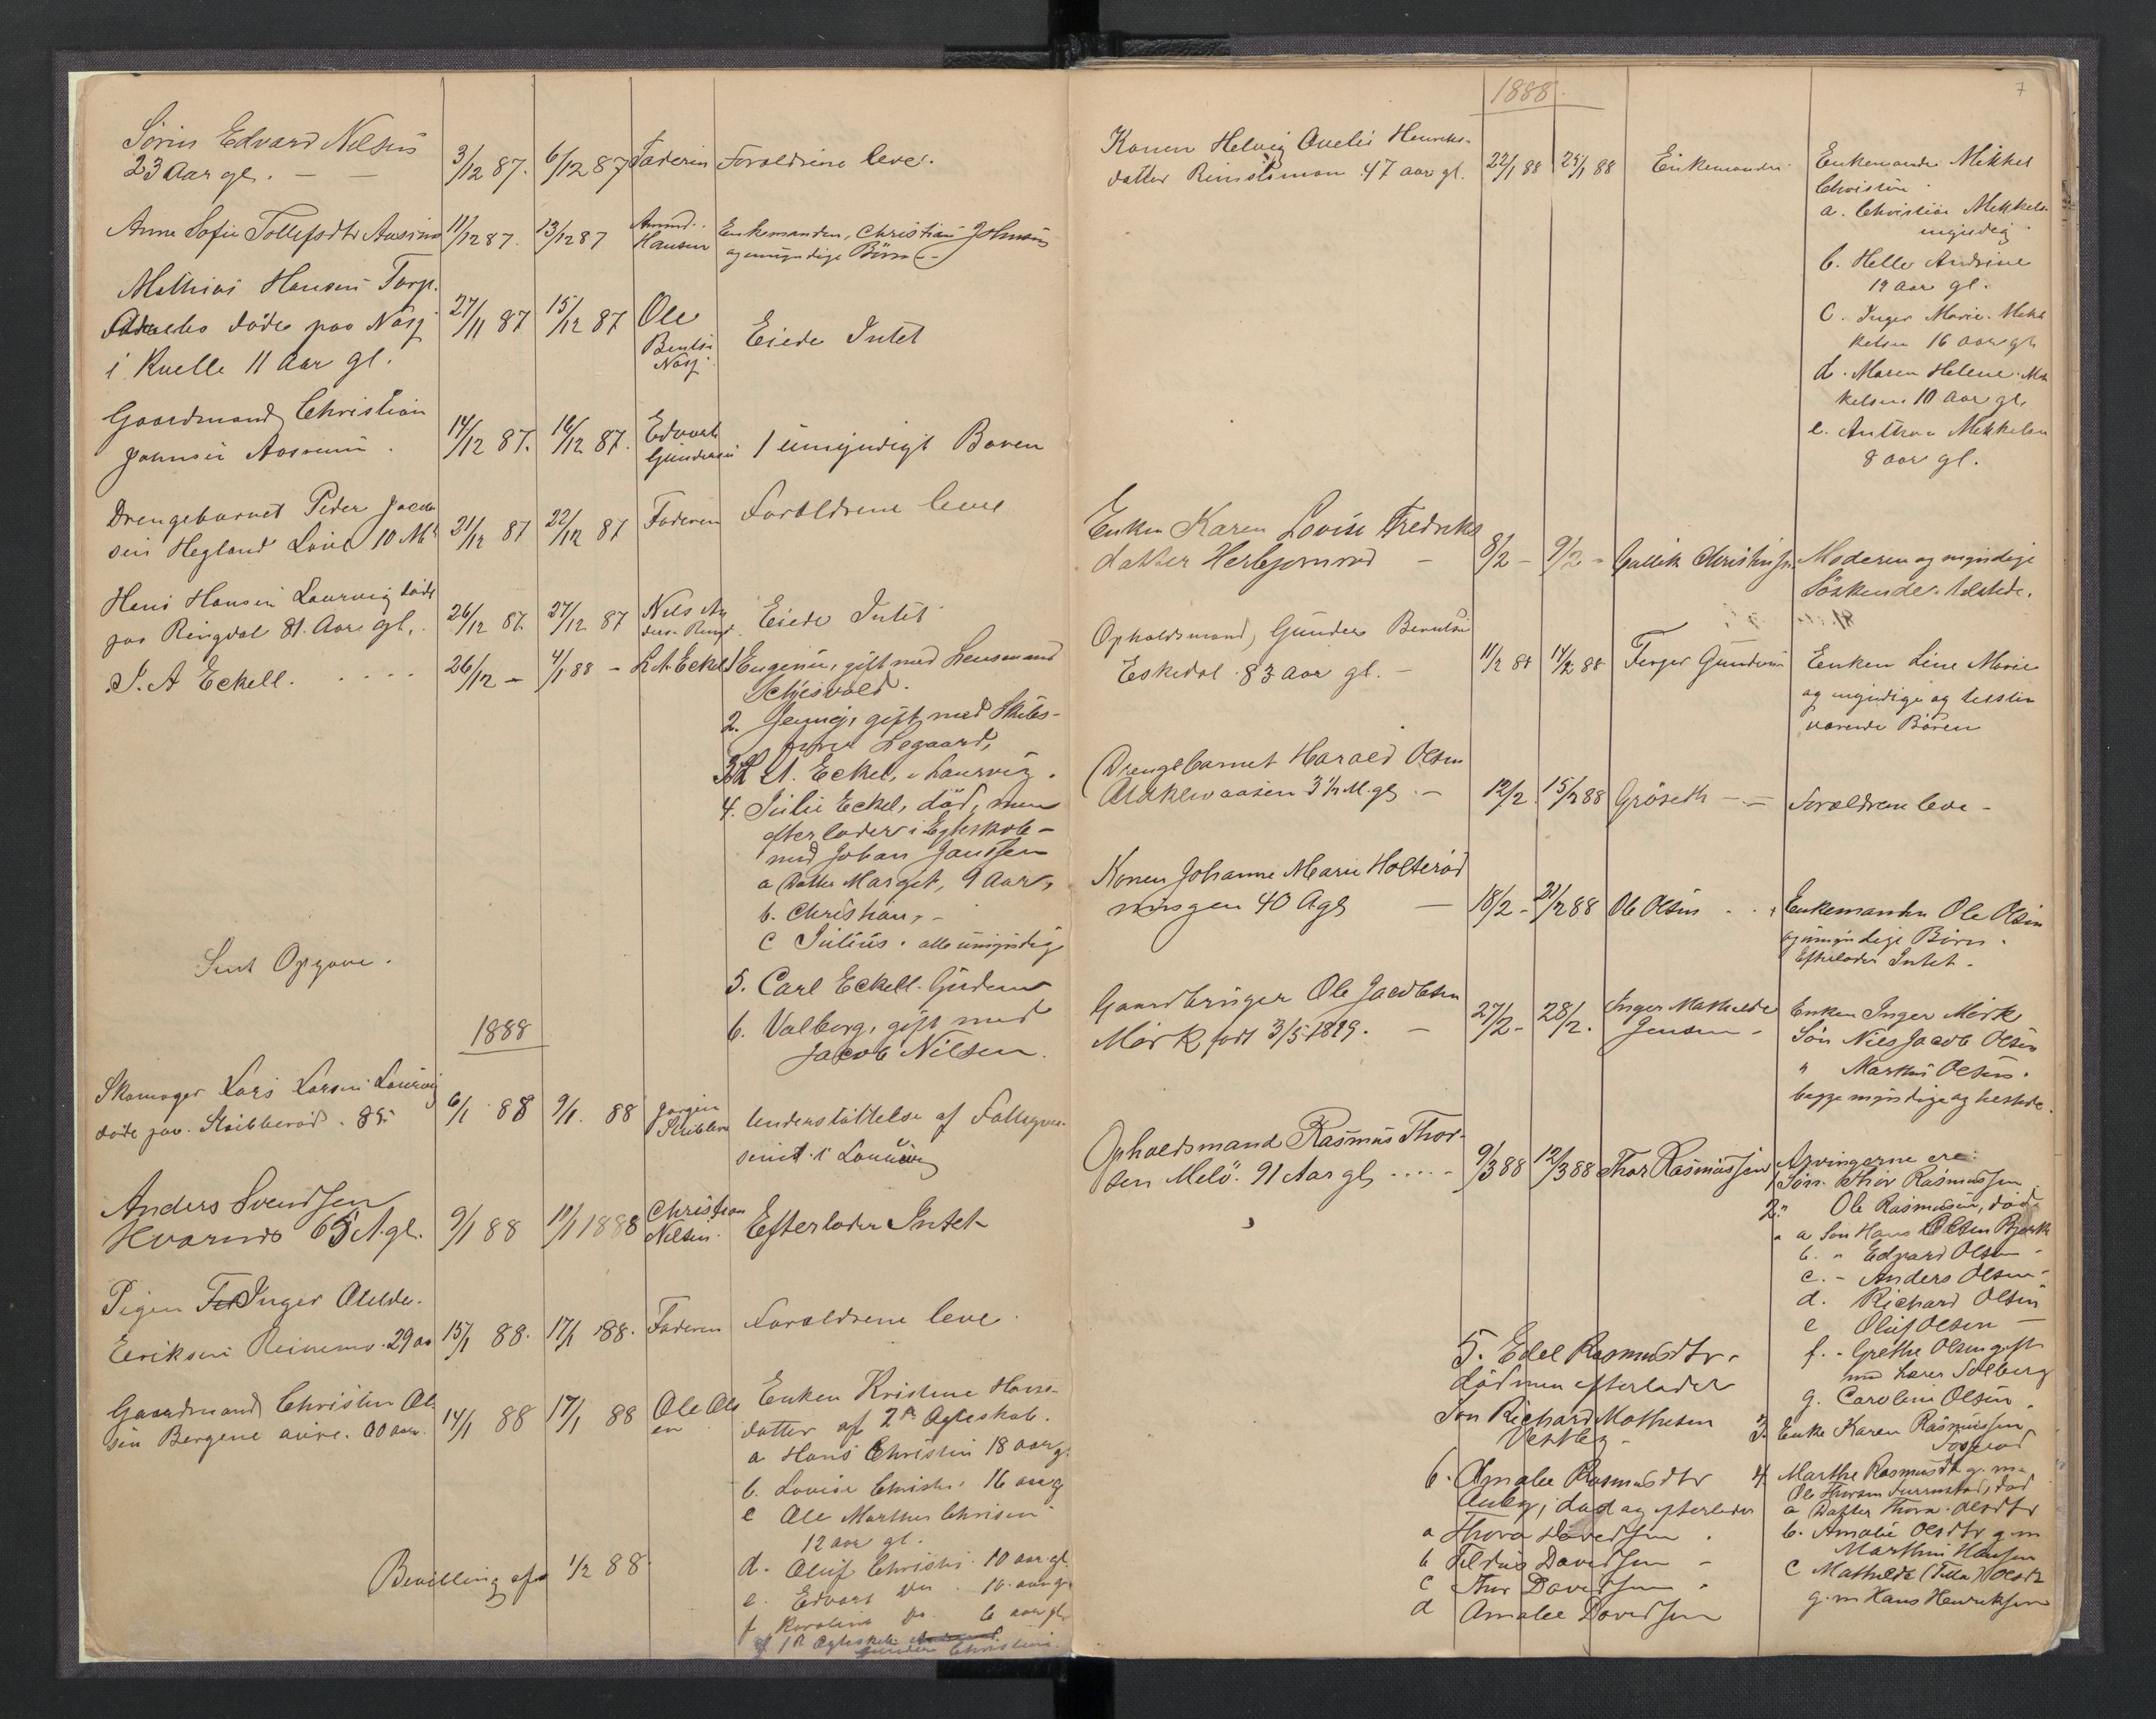 Sörin Edvard Nilsen
23 Aar gl. — —
3/12 87. 6/12 87 Faderen Foraldrene lever.
Anne Sofie Tollefsdtr
11/12 87. 13/12 87 Hansen Enkemanden, Christian Johnsen
og umyndige Börn
Mathias Hansen Torp.
döde paa Næsj
i Kvelle 11 Aar gl.
27/11 87 15/12 87 Ole
Bentsn
Næsj
Eiede Intet
Gaardmand Christian
Johnsen
14/12 87. 16/12 87. Edvart
Gundersen
1 umyndigt Baren
Drengebarnet Peder Jacob
sen Hegland 10 Md
21/12 87 22/12 87 Faderen Foraldrene leve
Hans Hansen Laurvig döde
paa Ringdal 81. Aar gl.
26/12 87. 27/12 87 Nils An
Eiede Intet
S. A Eckell. . . . .
26/12 — 4/1 88 — L. A. Eckel 1 Eugenie, gift med Lensmand
2. Jenny, gift med Skibs-
förer Legaard,
3. L. A. Eckel, i Laurvig.
4. Julie Eckel, död, men
efterlader i Egteskab
med Johan Janssen
a Datter Marget, 9 Aar,
b. Christian, -
c Julius. alle umyndige
Sent Opgave.
5. Carl Eckell.
6. Valborg, gift med
Jacob Nilsen.
1888
Skomager Lars Larsen Laurvig
döde paa. Skibberöd. 85
6/1 88 9/1. 88 Jörgen
Understöttelse af Fattigvæ-
senet i Laurvig
Anders Svendsen
65 A. gl.
9/1 88 10/1 1888 Christian
Nilsen.
Efterlader Intet
Pigen Inger
Eriksen 29 aa
15/1 88. 17/1 88. Faderen Foraldrene leve.
Gaardmand Christen Ol
sen Bergene
14/1 88 17/1 88 Ole Ols
en
Enken Kristine Hans-
datter af 2det Egteskab.
a Hans Christen 18 aar g.
b. Lovise Christs. 16 aar g
c Ole Marthin Chrisen
12 aar gl.
d. Oluf Christs. 10 aar. gl.
e. Edvart Do. 10. aar gl
f Karoline Do. 6 aar gl.
Bevilling af 1/2 88.
1888.
7
Konen Helvig Henriks-
datter 47 aar gl.
22/1 88 25/1 88 Enkemanden
Enkemanden Mikkel
Christen
a. Christian Mikkels.
myndig
b. Helle Andrine
19 aar gl.
c. Inger Marie. Mikk
kelsen 16 aar gl
d. Maren Helene. Mik
kelsen 10 aar gl.
e. Anthon Mikkelsen
8 aar gl.
Enken Karen Lovise Fredriks
datter Herbjornrod —
8/2 — 9/2 — Moderen og myndige
Söskende. tilstede.
Opholdsmand, Gunder Berntsen
Eskedal 83 aar gl. —
11/2 88 14/2 88 Torger Gundersen Enken Line Marie
og myndige og tilste
værende Bören
Drengebarnet Harald Olsen
3 1/2 M. gl. —
12/2. 15/2 88 Gröseth — — Foraldrene leve —
Konen Johanne Marie Holteröd
40 A gl —
18/2 — 21/2 88 Ole Olsen . . Enkemanden Ole Olsen
og umyndige Börn.
Efterlader Intet.
Gaardbruger Ole Jacobsen
Mörk, född 3/5 1819. —
27/2 — 28/2. Inger Mathilde
Jensen —
Enken Inger Mörk
Sön Niels Jacob Olsen
" Markus Olsen.
begge myndige og tilstede.
Opholdsmand Rasmus Thor-
sen Melö. 91 Aar gl. . . . . —
9/3 88 12/3 88 Thor Rasmussen Arvingerne ere:
1 Sön. Thor Rasmussen
2. " Ole Rasmussen, död
a Sön Hans Olsen Bjerk
b. " Edvard Olsen
c. — Anders Olsen
d. Richard Olsen
e Oluf Olsen —
f. - Grethe Olsen gift
med Lærer Solberg
g. Caroline Olsen.
3. Enke Karen Rasmussen
4. Marthe Rasmusdtr g. m.
Ole Thorsen Furrustad, död
a Datter Thora Olsdtr
b. Amalie Olsdtr g. m
Marthin Hansen
c Mathilde (Tilla) Olsdtr
g. m Hans Henriksen
5. Edel Rasmusdtr.
död men efterlader
Sön Richard Mathisen
Vestby.
6. Amalie Rasmusdtr
Auby, död og efterlader
a Thora Davidsen .
b Davidsen —
c Thor Davidsen "
d Amalie Davidsen